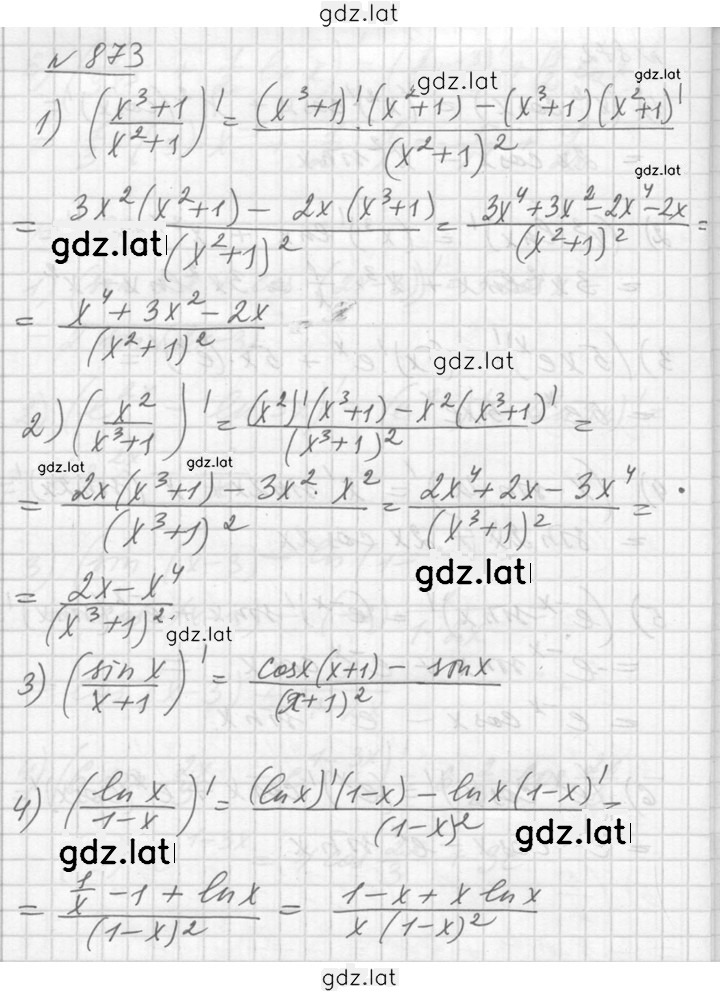 gdz.lat
№ 873
gdz.lat gdz.lat
1) ((x³+1)/(x²+1))' = ((x³+1)'(x²+1) − (x³+1)(x²+1)')/(x²+1)²
gdz.lat
= (3x²(x²+1) − 2x(x³+1))/(x²+1)² = (3x⁴+3x²−2x⁴−2x)/(x²+1)² =
gdz.lat gdz.lat
= (x⁴+3x²−2x)/(x²+1)²
gdz.lat
2) (x²/(x³+1))' = ((x²)'(x³+1) − x²(x³+1)')/(x³+1)² =
gdz.lat gdz.lat
= (2x(x³+1) − 3x²·x²)/(x³+1)² = (2x⁴+2x−3x⁴)/(x³+1)² =
gdz.lat
= (2x−x⁴)/(x³+1)².
gdz.lat
3) (sin x/(x+1))' = (cosx(x+1) − sinx)/(x+1)²
4) (ln x/(1−x))' = ((lnx)'(1−x) − lnx(1−x)')/(1−x)² =
gdz.lat gdz.lat
= (1/x −1 + lnx)/(1−x)² = (1−x+x lnx)/(x(1−x)²)
gdz.lat